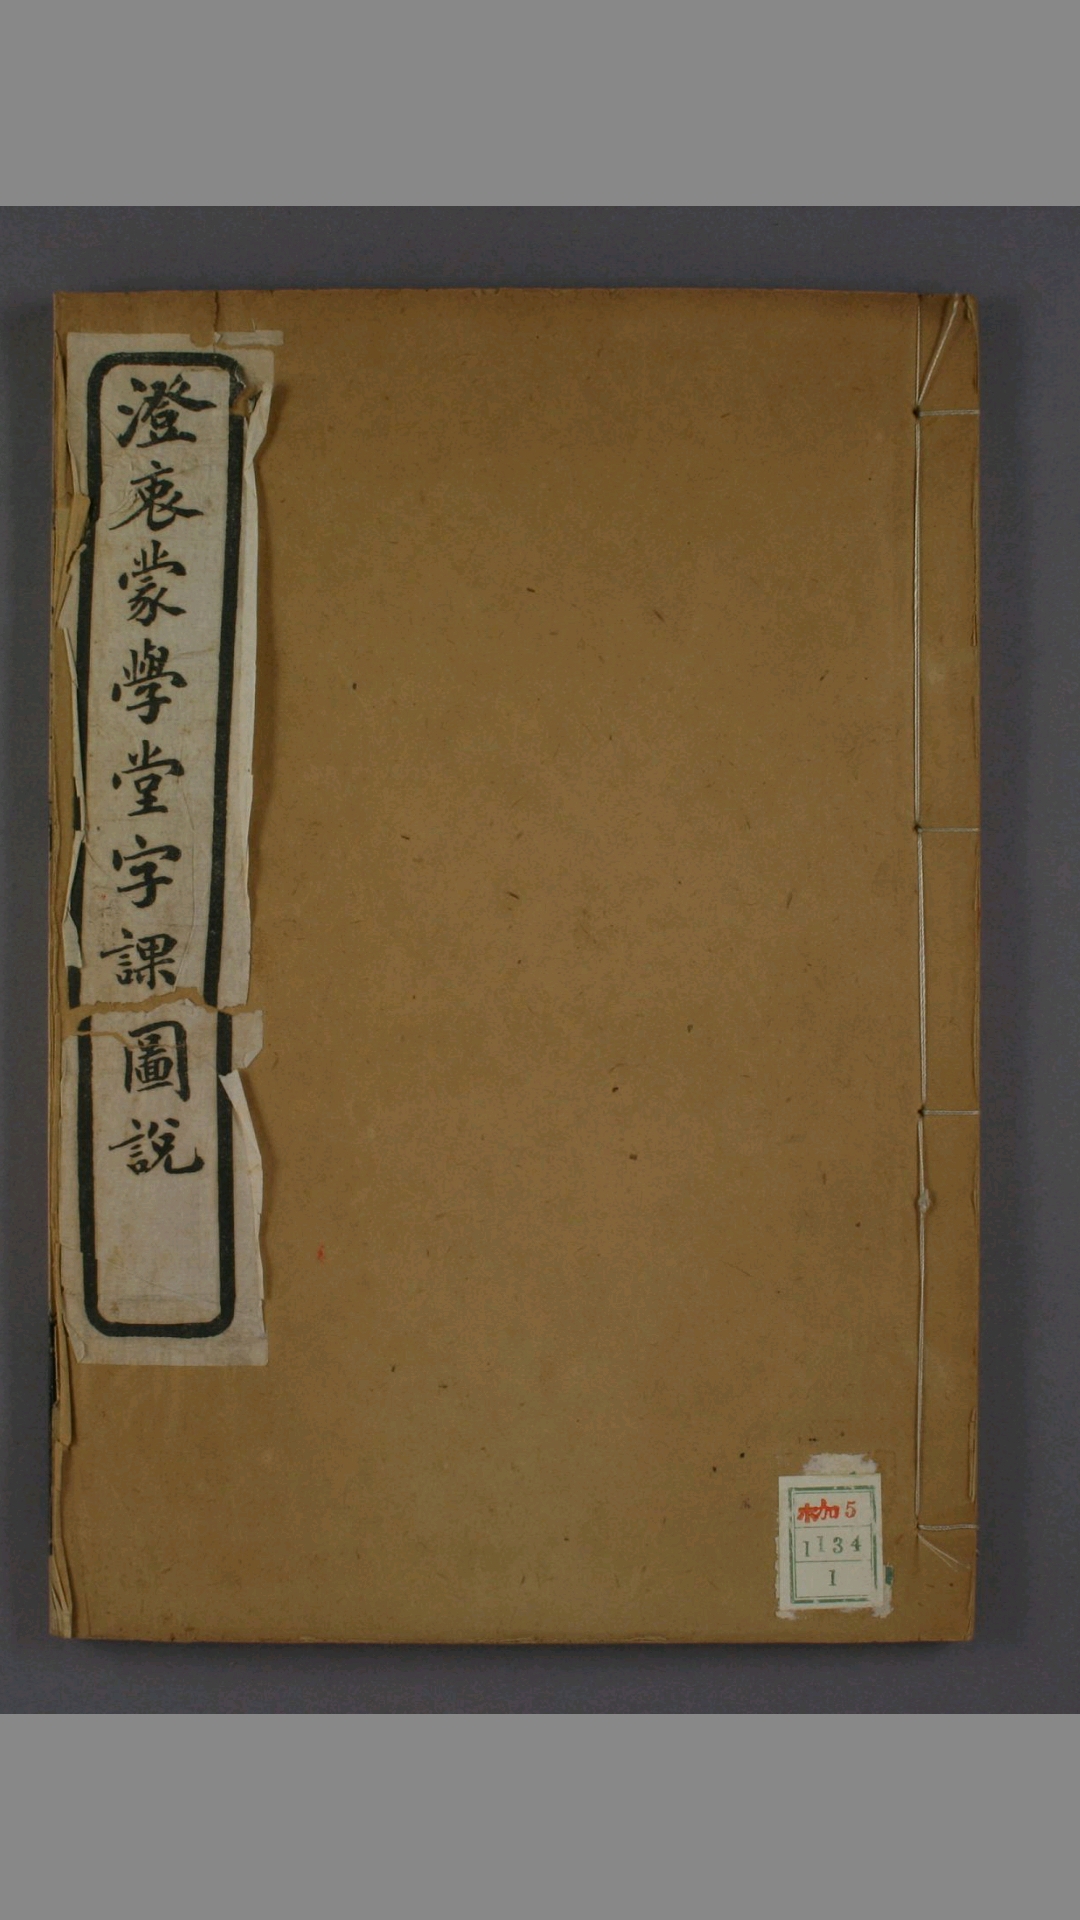 澄衷蒙學堂字課圖說
5
1134
1